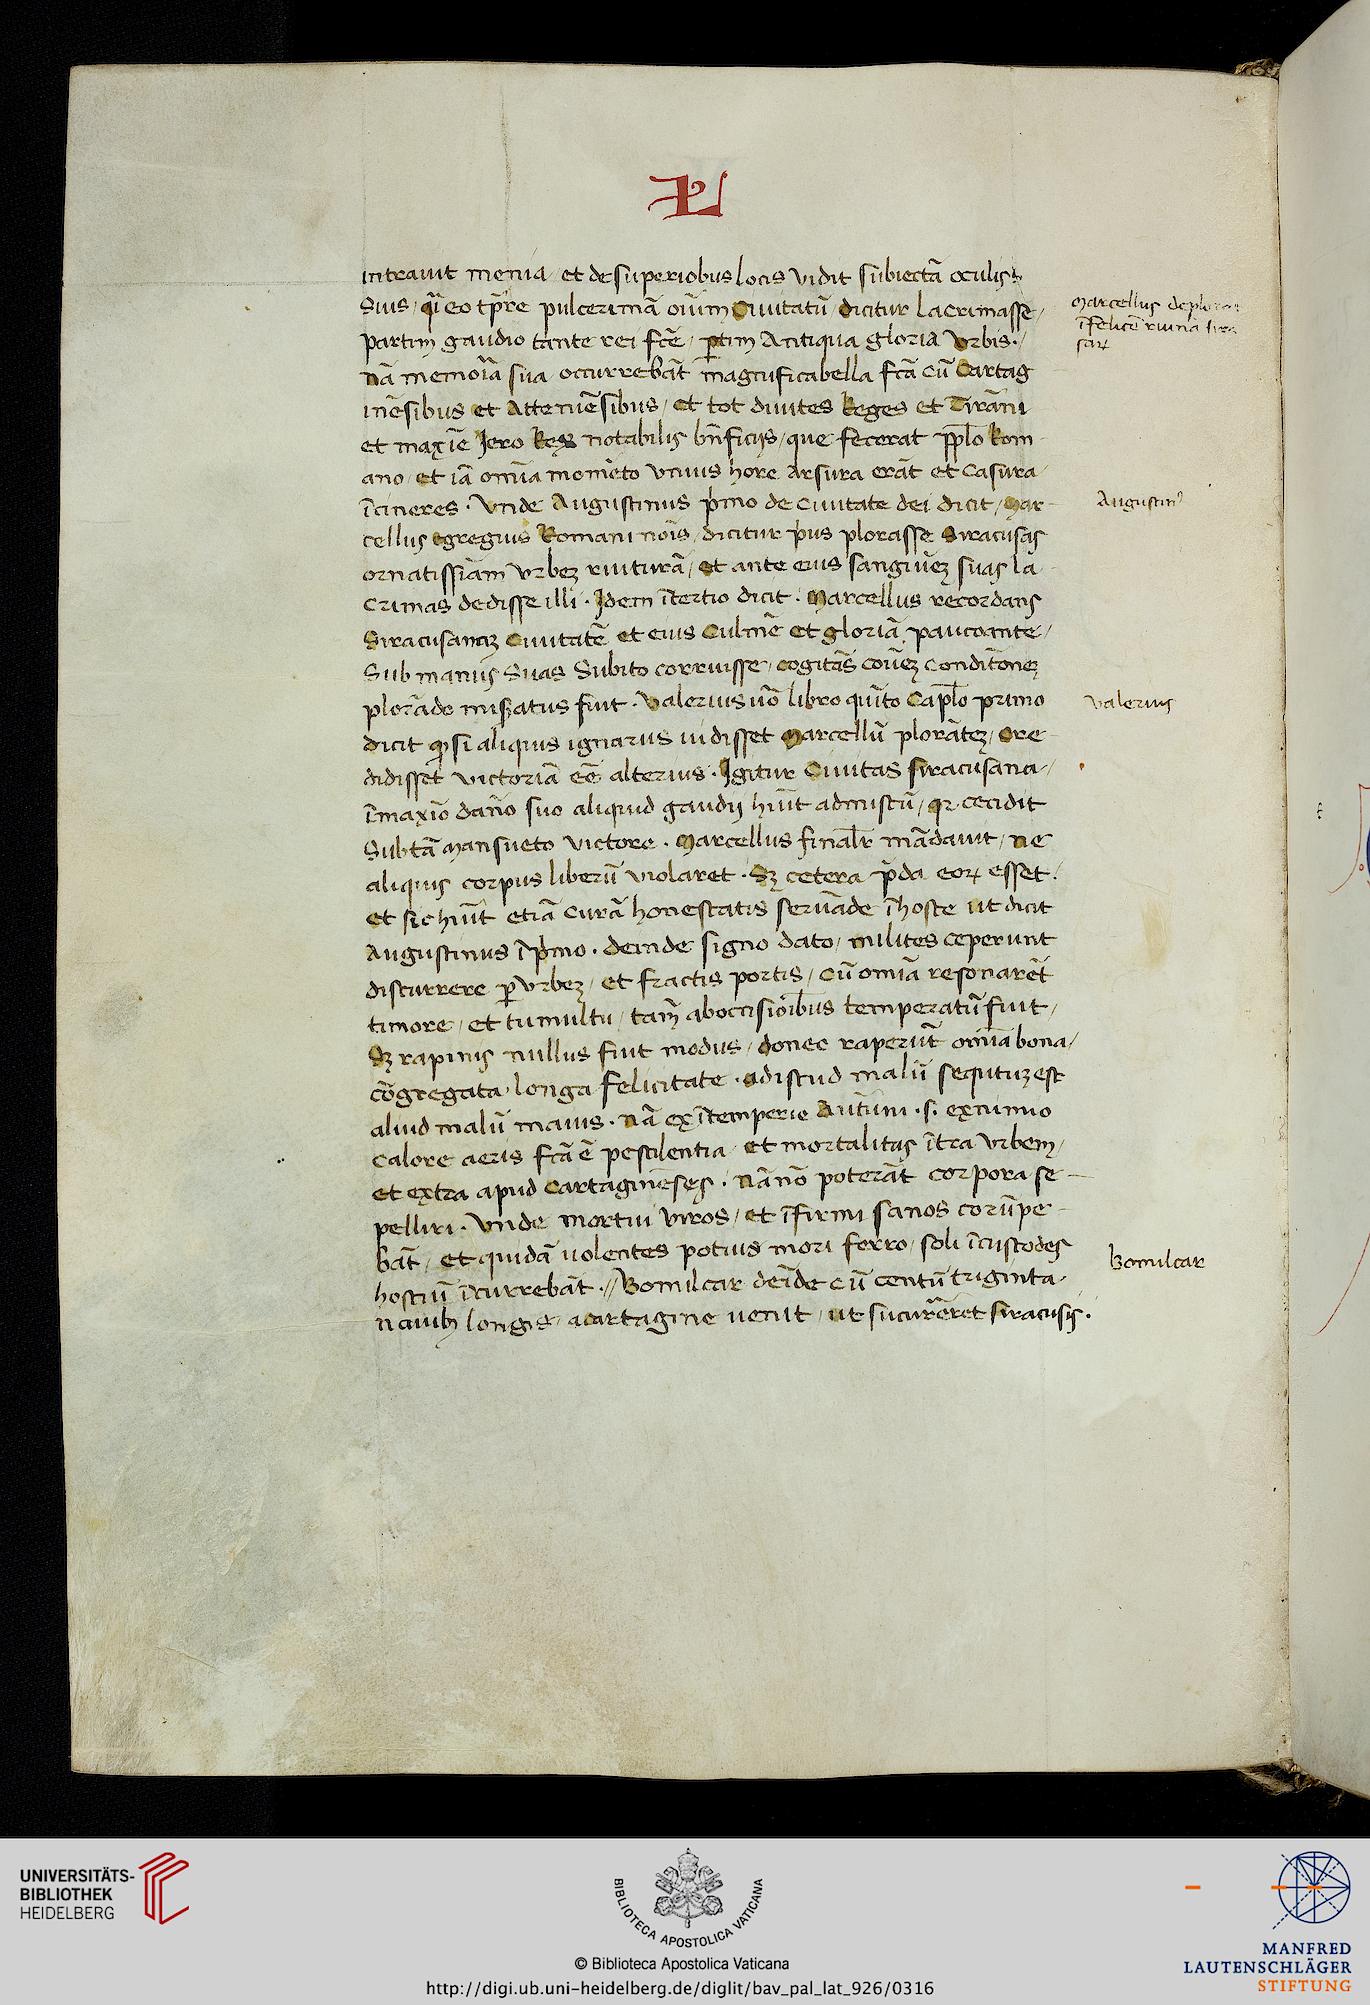 intrauit menia / et de superiobus locis vidit subiectã oculis
Suis / q̃ eo tp̃re pulcerimã oium̃ Ciuitatũ / dicitur Lacrimasse /
partim gaudio tante rei fcẽ / ptim Antiqua gloria vrbis · /
nã memoĩa sua occurrebãt magnificabella fcã cũ Cartag
inẽsibus et Atteniẽsibus / et tot diuites Reges et Tirãni
et maxĩe Jero Rex notabilis bñficijs / que fecerat pplo Rom
ano / et iã omĩa momẽto vnius hore Arsura erãt et Casura /
ĩcineres · Vnde Augustinus pͥmo de Ciuitate dei dicit / Mar
cellus egregius Romani noĩs / dicitur pͥus plorasse Siracusas
ornatissiãm vrbeʒ ruiturã / et ante eius sanguiñeʒ suas la
Crimas dedisse illi · Idem ĩtertio dicit · Marcellus recordans
Siracusanaʒ Ciuitatẽ et eius Culmẽ et gloriã paucoante /
Sub manus Suas Subito corruisse / cogitãs coũeʒ Conditõneʒ
plorãdo misatus fuit · Valerius ũo libro quĩto Caplo primo
dicit qp si aliquis ignarus uidisset Marcellũ plorãteʒ / Cre
didisset victoriã eẽ alterius · Igitur Ciuitas siracusana /
ĩmaxĩo dãno suo aliquid gaudij hũit admistũ / qꝛ cecidit
Subtã Mansueto victore · Marcellus finalr̃ mãdauit / ne
aliquis corpus liberũ violaret · Sʒ cetera p̃da eoꝝ esset ·
et sic hũit etiã Curã honestatis seruãde ĩhoste ut dicit
Augustinus ĩpͥmo · deinde signo dato / milites ceperunt
discurrere p̱ vrbeʒ / et fractis portis / cũ omĩa resonarẽt
timore / et tumultu / tam̃ aboccisiõibus temperatũ fuit /
Sʒ rapinis nullus fuit modus / donec raperũt omĩa bona /
cõgregata longa felicitate · adistud malũ sequituʒ est
aliud malũ maius · Nã ex ĩtemperie Autũni · s · ex nimio
Calore aeris fcã ẽ pestilentia / et mortalitas ĩtra vrbem /
et extra apud Cartaginẽses · Nã nõ poterãt corpora se
pelliri · Vnde mortui viros / et ĩfirmi sanos corũpe
bãt / et quidã uolentes potius mori ferro / soli ĩcustodes
hostiũ ĩcurrebãt · // Bomilcar deĩde cũ centũ triginta ·
nauibʒ longis / acartagine uenit / ut sucurẽret siracusis ·
Marcellus deplorat
ĩfelicẽ ruinã sira
saꝝ
Augustinꝰ
Valerius
Bomilcar
UNIVERSITÄTS-
BIBLIOTHEK
HEIDELBERG
BIBLIOTECA APOSTOLICA VATICANA
© Biblioteca Apostolica Vaticana
http://digi.ub.uni-heidelberg.de/diglit/bav_pal_lat_926/0316
MANFRED
LAUTENSCHLÄGER
STIFTUNG